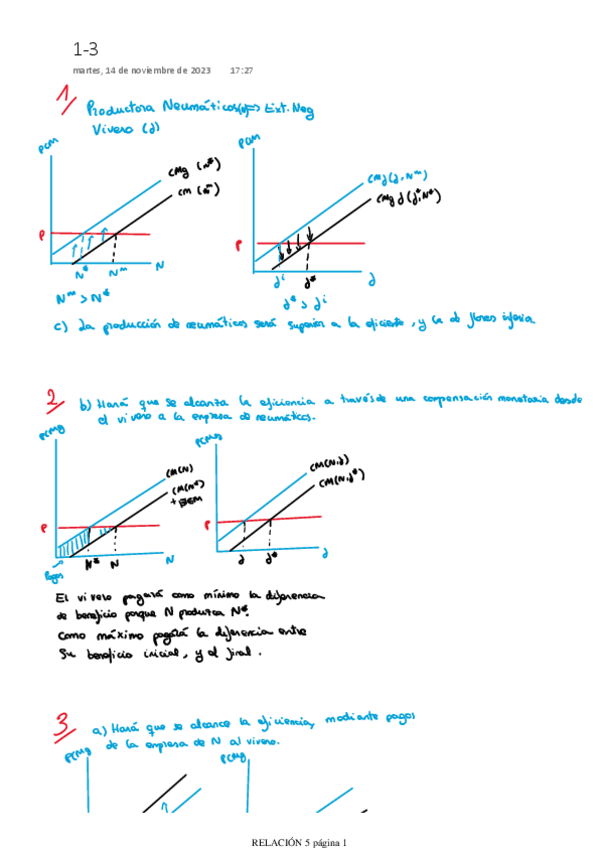 1-3
martes, 14 de noviembre de 2023 17:27
1/ Productora Neumáticos => Ext. Neg
Vivero (J)
PCM
CMg (N*)
P
N*
N^m
N
N^m > N*
PCM
P
J^i
J*
J
J* > J^i
c) La producción de neumáticos será superior a la eficiente, y la de flores inferior
2/ b) Hará que se alcanza la eficiencia a través de una compensación monetaria desde
el vivero a la empresa de neumáticos.
PCMg
CM(N)
CM(N*)
P
Pagos
N*
N
N
PCMg
CM(N,J)
CM(N,J*)
P
J
J*
J
El vivero pagará como mínimo la diferencia
de beneficio porque N produzca N*.
Como máximo pagará la diferencia entre
su beneficio inicial, y el final.
3/ a) Hará que se alcance la eficiencia, mediante pagos
de la empresa de N al vivero.
PCMg
PCMg
RELACIÓN 5 página 1